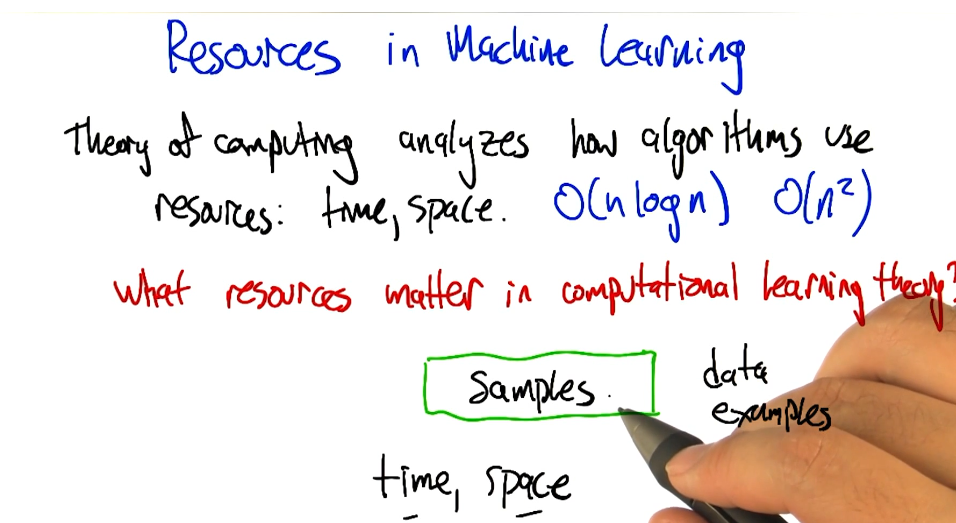 Resources in Machine Learning
Theory of computing analyzes how algorithms use
resources: time, space. O(n log n) O(n²)
what resources matter in computational learning theory?
Samples. data
examples
time, space